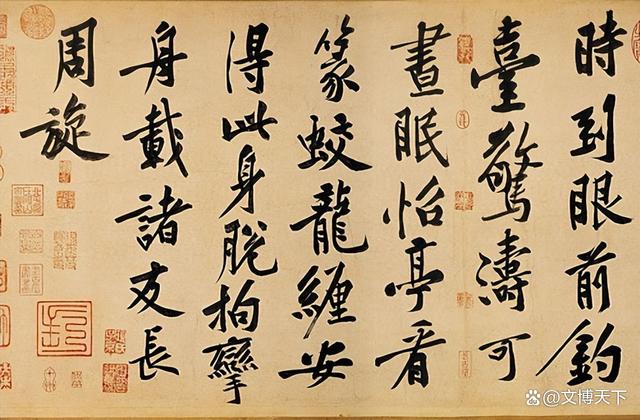 時到眼前釣
臺驚濤可
晝眠怡亭看
篆蛟龍纏安
得此身脫拘攣
舟載諸友長
周旋
@文博天下